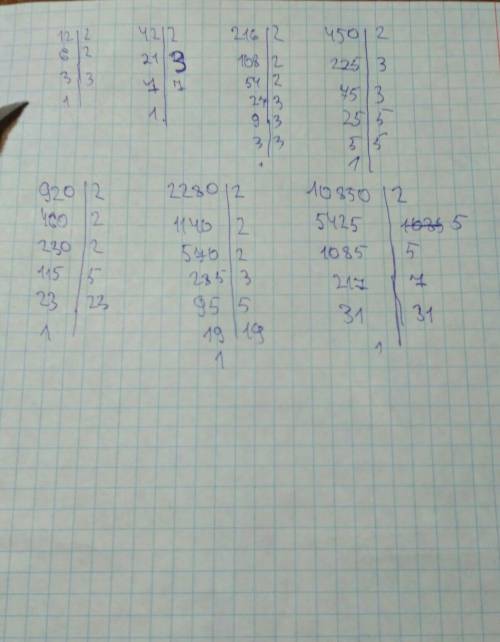 12 | 2
6 | 2
3 | 3
1
42 | 2
21 | 3
7 | 7
1
216 | 2
108 | 2
54 | 2
27 | 3
9 | 3
3 | 3
450 | 2
225 | 3
75 | 3
25 | 5
5 | 5
1
920 | 2
460 | 2
230 | 2
115 | 5
23 | 23
1
2280 | 2
1140 | 2
570 | 2
285 | 3
95 | 5
19 | 19
1
10850 | 2
5425 | 5
1085 | 5
217 | 7
31 | 31
1